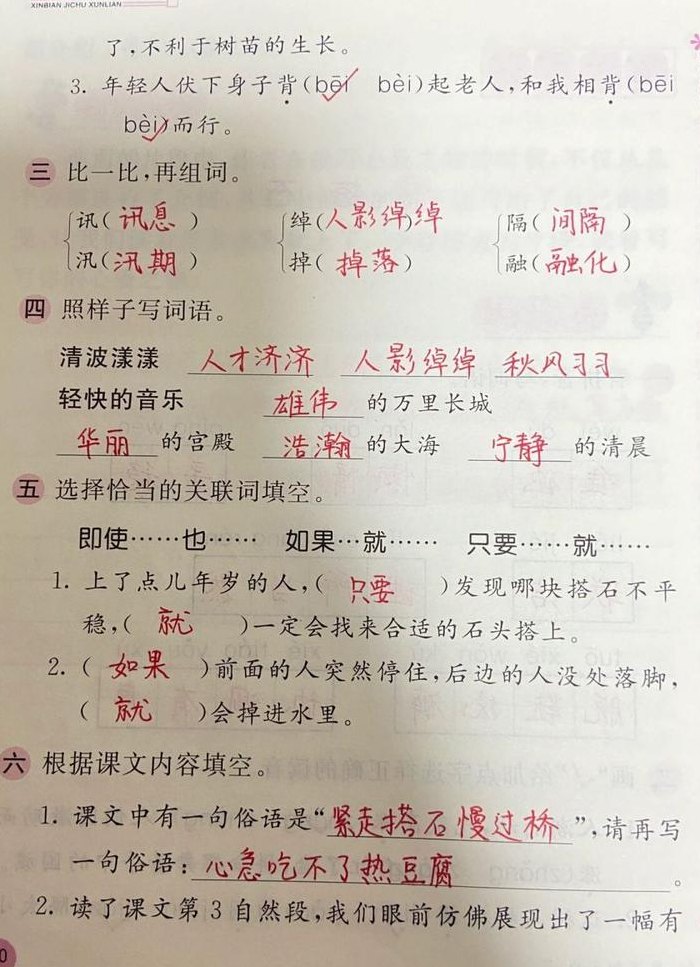 XINBIAN JICHU XUNLIAN
了，不利于树苗的生长。
3. 年轻人伏下身子背(bēi bèi)起老人，和我相背(bēi
bèi)而行。
三 比一比，再组词。
讯(讯息) 绰(人影绰绰) 隔(间隔)
汛(汛期) 掉(掉落) 融(融化)
四 照样子写词语。
清波漾漾 人才济济 人影绰绰 秋风习习
轻快的音乐 雄伟的万里长城
华丽的宫殿 浩瀚的大海 宁静的清晨
五 选择恰当的关联词填空。
即使……也…… 如果…就…… 只要……就……
1. 上了点儿年岁的人，(只要)发现哪块搭石不平
稳，(就)一定会找来合适的石头搭上。
2. (如果)前面的人突然停住，后边的人没处落脚，
(就)会掉进水里。
六 根据课文内容填空。
1. 课文中有一句俗语是“紧走搭石慢过桥”，请再写
一句俗语：心急吃不了热豆腐。
2. 读了课文第3自然段，我们眼前仿佛展现出了一幅有
0